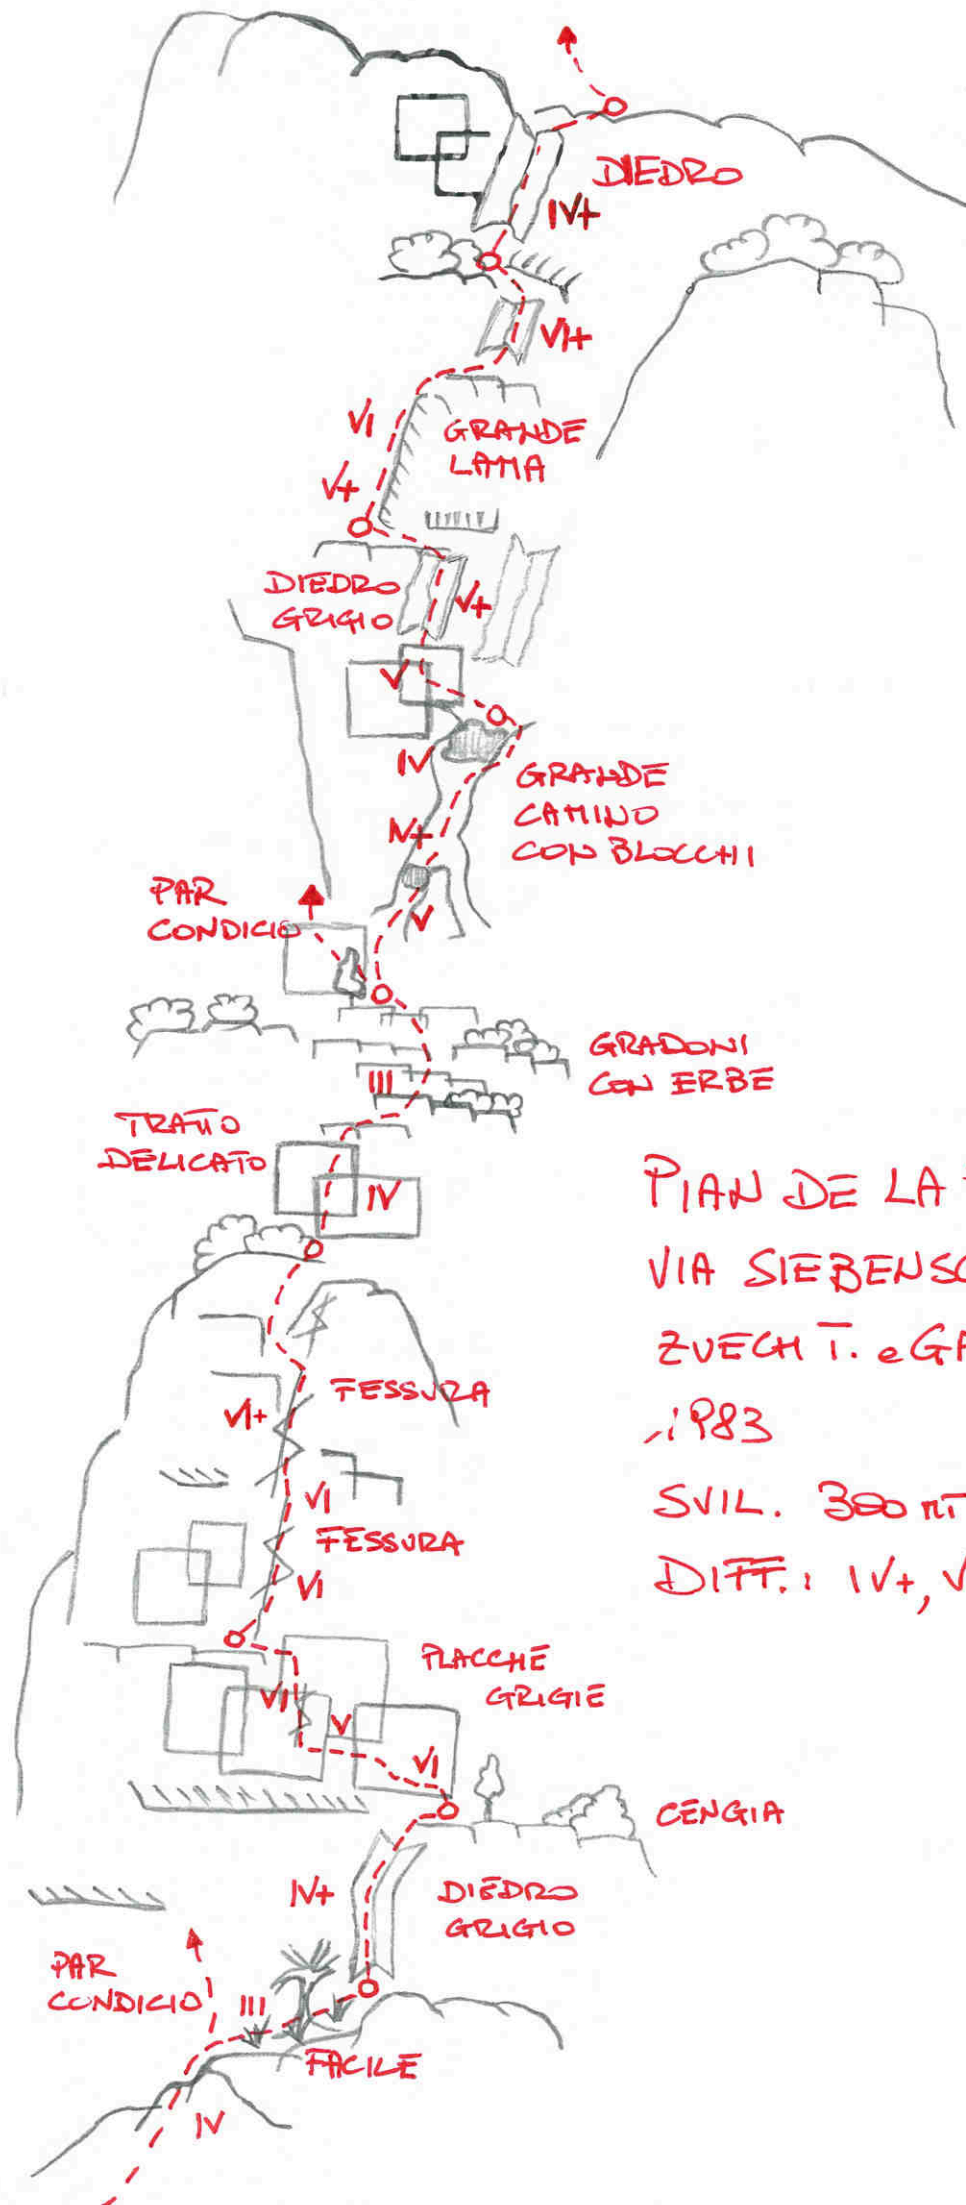 DIEDRO
IV+
VI+
VI
GRANDE
LAMA
V+
DIEDRO
GRIGIO
V+
V
IV
GRANDE
CAMINO
CON BLOCCHI
IV+
PAR
CONDICIO
V
GRADONI
CON ERBE
III
TRATTO
DELICATO
IV
PIAN DE LA
VIA SIEBENSC
ZUECH T. e GA
1983
SVIL. 300 MT
DIFF.: IV+, V
FESSURA
VI+
VI
FESSURA
VI
PLACCHE
GRIGIE
VII
V
VI
CENGIA
IV+
DIEDRO
GRIGIO
PAR
CONDICIO
III
FACILE
IV